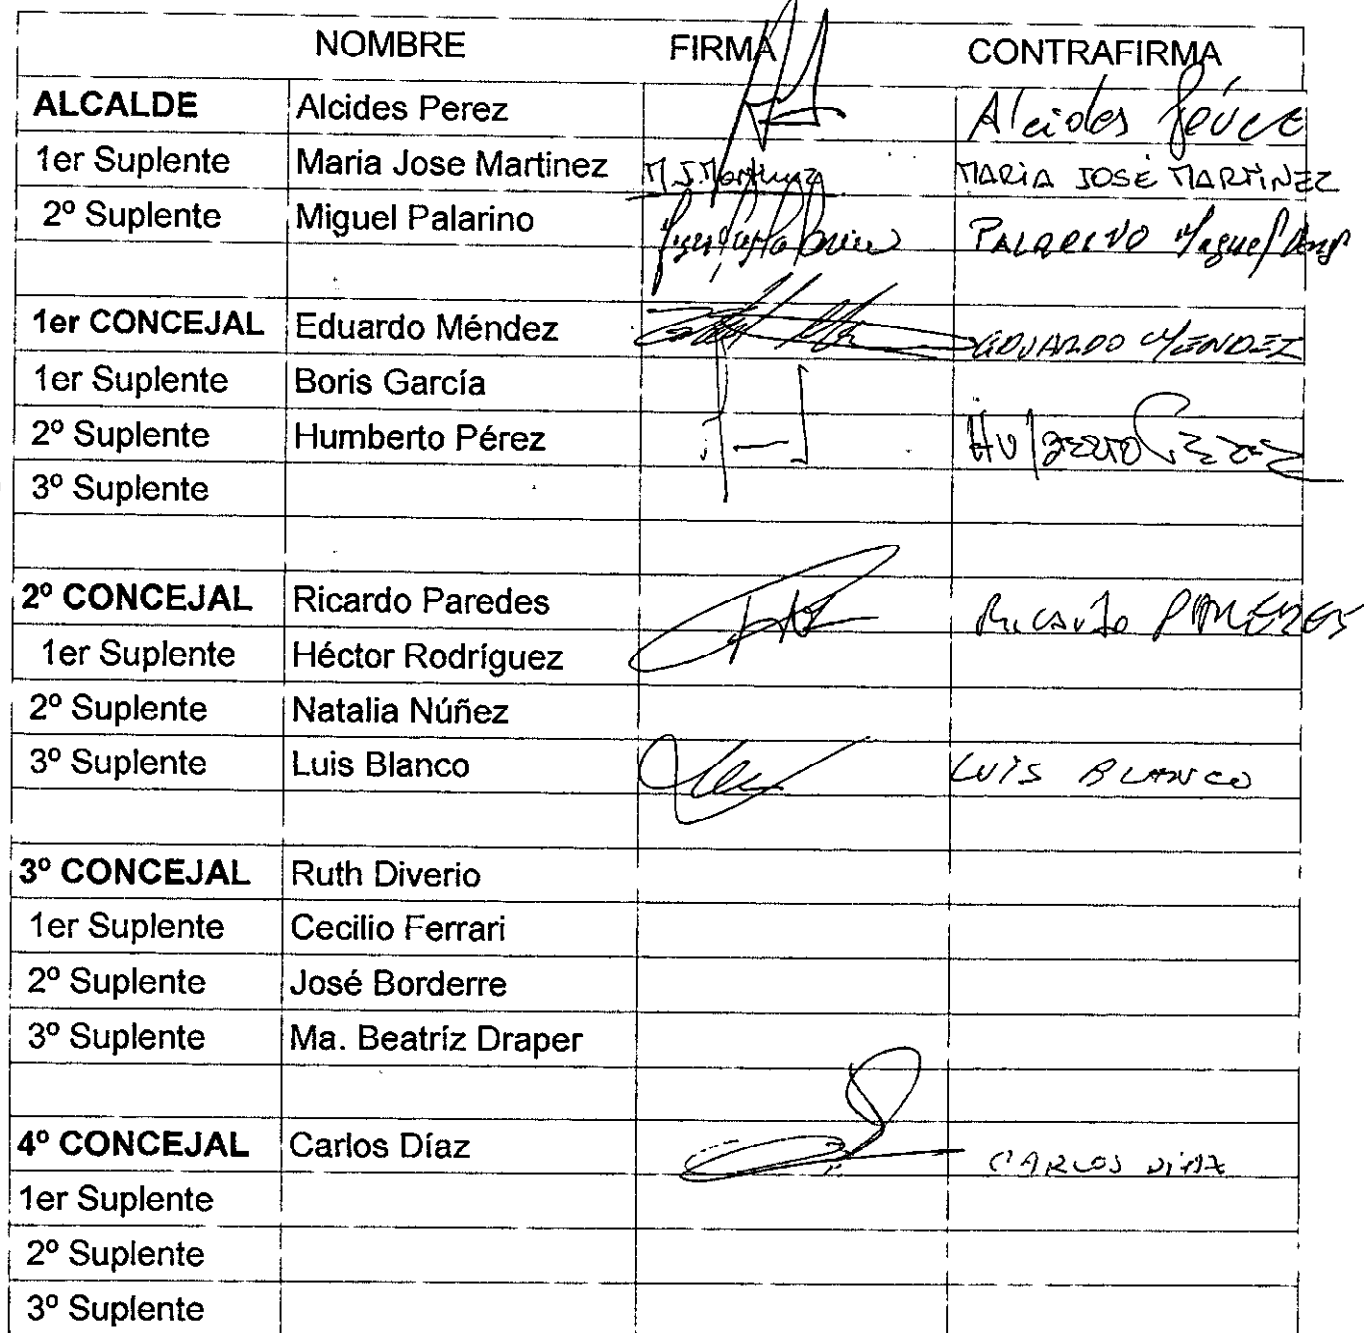 NOMBRE FIRMA CONTRAFIRMA
ALCALDE Alcides Perez Alcides Pérez
1er Suplente Maria Jose Martinez M.J.Martinez MARIA JOSÉ MARTINEZ
2º Suplente Miguel Palarino PALARINO Miguel Angel
1er CONCEJAL Eduardo Méndez EDUARDO MENDEZ
1er Suplente Boris García
2º Suplente Humberto Pérez
3º Suplente
2º CONCEJAL Ricardo Paredes Ricardo PAREDES
1er Suplente Héctor Rodríguez
2º Suplente Natalia Núñez
3º Suplente Luis Blanco LUIS BLANCO
3º CONCEJAL Ruth Diverio
1er Suplente Cecilio Ferrari
2º Suplente José Borderre
3º Suplente Ma. Beatríz Draper
4º CONCEJAL Carlos Díaz CARLOS DIAZ
1er Suplente
2º Suplente
3º Suplente